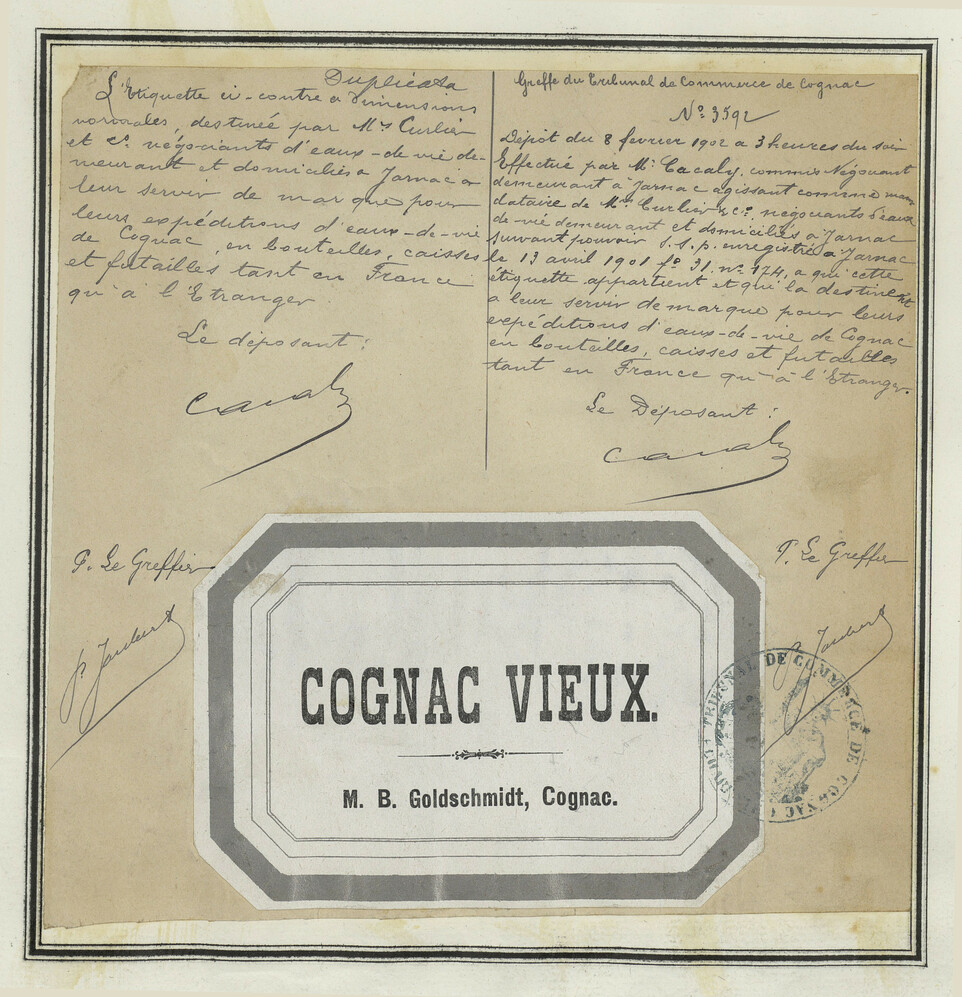 Duplicata
L'Etiquette ci-contre a dimensions
normales, destinée par Mrs Curlier
et Cie négociants d'eaux-de-vie de-
meurant et domiciliés à Jarnac à
leur servir de marque pour
leurs expéditions d'eaux-de-vie
de Cognac, en bouteilles, caisses
et futailles tant en France
qu'à l'Etranger.
Le déposant :
Greffe du Tribunal de Commerce de Cognac
No 3592
Dépôt du 8 février 1902 à 3 heures du soir
Effectué par Mr Cacaly, commis Négociant
demeurant à Jarnac agissant comme man
dataire de Mrs Curlier & Cie négociants d'eaux
de-vie demeurant et domiciliés à Jarnac
suivant pouvoir s.s.p. enregistré à Jarnac
le 13 avril 1901 fo 31. no 174, à qui cette
étiquette appartient et qui la destinent
à leur servir de marque pour leurs
expéditions d'eaux-de-vie de Cognac
en bouteilles, caisses et futailles
tant en France qu'à l'Etranger.
Le Déposant :
P. Le Greffier
P. Joubert
P. Le Greffier
P. Joubert
COGNAC VIEUX.
M. B. Goldschmidt, Cognac.
TRIBUNAL DE COMMERCE DE COGNAC